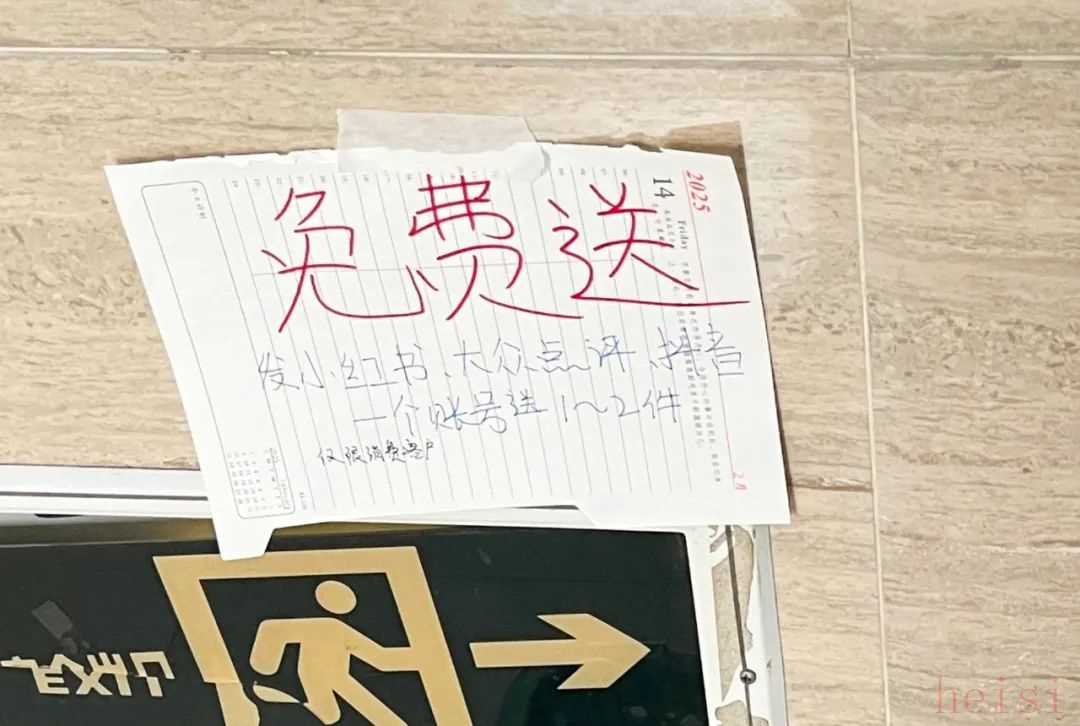 免费送
发小红书、大众点评、抖音
一个账号送1～2件
仅限消费客户
2025
14
Friday
2月
EXIT
heisi